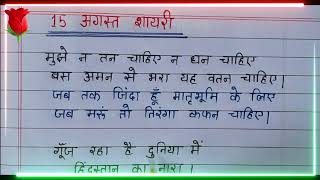 15 अगस्त शायरी
मुझे न तन चाहिए न धन चाहिए
बस अमन से भरा यह वतन चाहिए।
जब तक जिंदा हूँ मातृभूमि के लिए
जब मरूं तो तिरंगा कफन चाहिए।
गूँज रहा है दुनिया में
हिंदुस्तान का नारा।